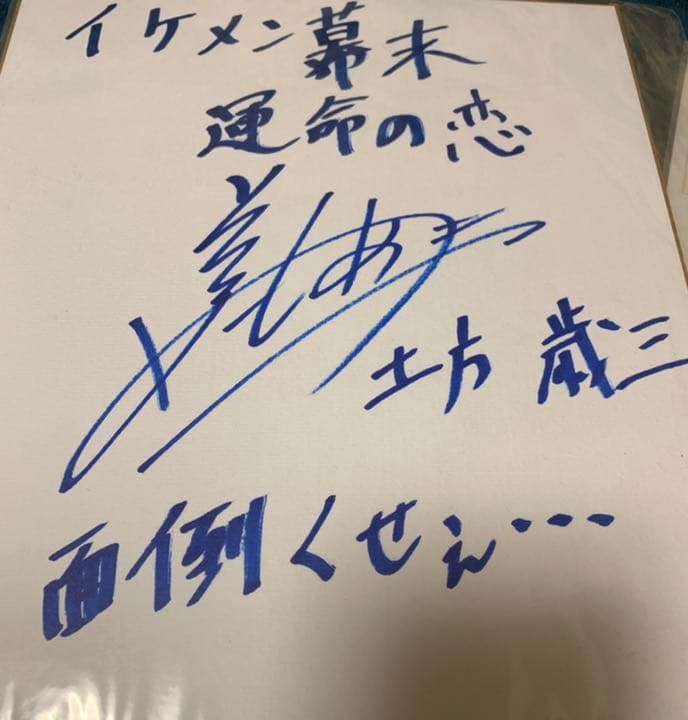 イケメン幕末
運命の恋
土方 歳三
面倒くせぇ…